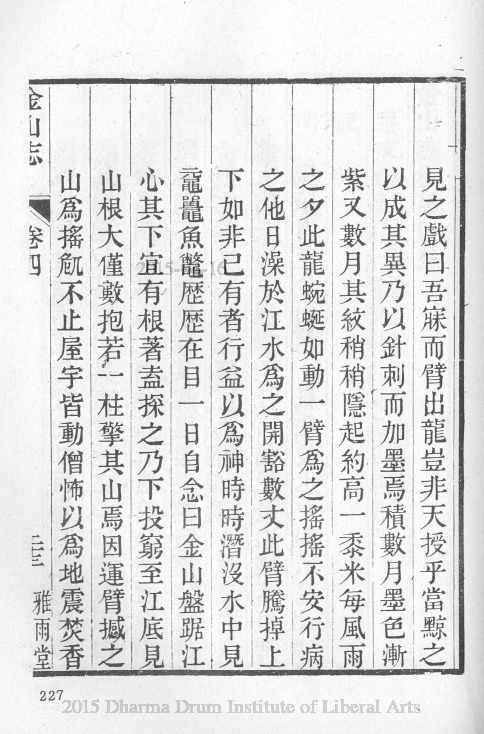 見之戲曰吾寐而臂出龍豈非天授乎當黥之
以成其異乃以針刺而加墨焉積數月墨色漸
紫又數月其紋稍稍隱起約高一黍米每風雨
之夕此龍蜿蜒如動一臂為之搖搖不安行病
之他日澡於江水為之開豁數丈此臂騰掉上
下如非己有者行益以為神時時潛沒水中見
黿鼉魚鼈歷歷在目一日自念曰金山盤踞江
心其下宜有根著盍探之乃下投窮至江底見
山根大僅數抱若一柱擎其山焉因運臂撼之
山為搖𠨜不止屋宇皆動僧怖以為地震焚香
金山志 卷四 雅雨堂
227
2015 Dharma Drum Institute of Liberal Arts